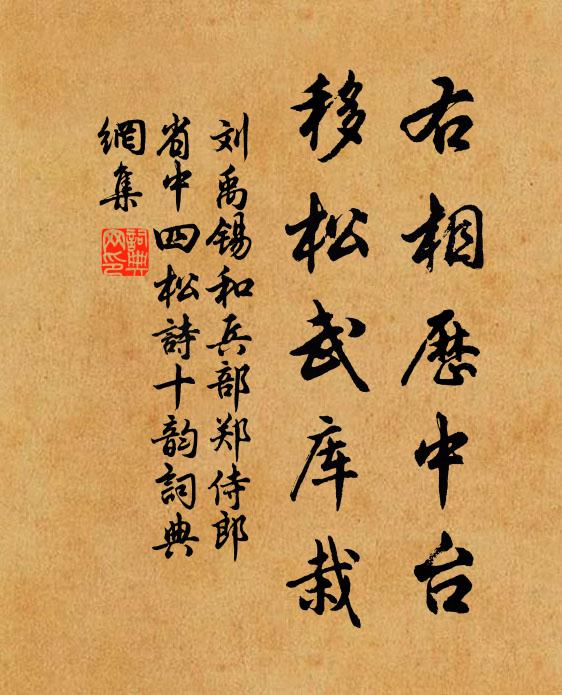 右相历中台
移松武库栽
刘禹锡和兵部郑侍郎
省中四松詩十韵詞典
網集
詞典
网印